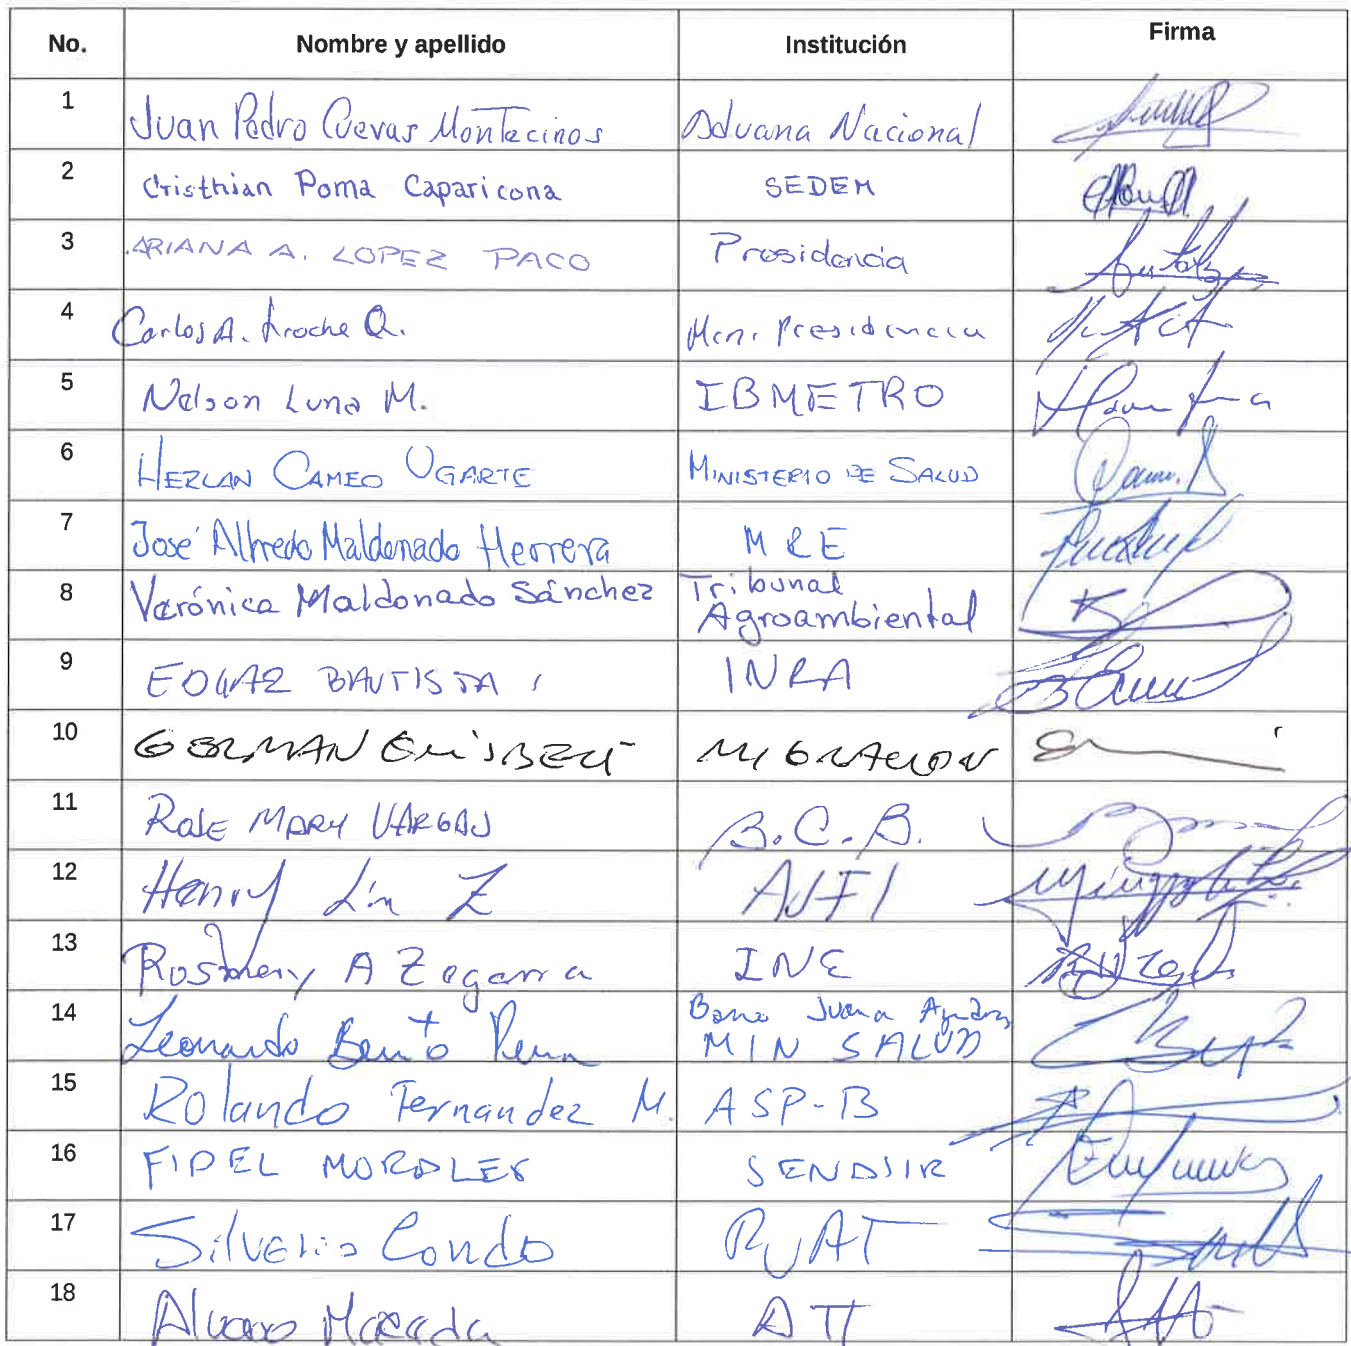 No. Nombre y apellido Institución Firma
1 Juan Pedro Cuevas Montecinos Aduana Nacional
2 Cristhian Poma Caparicona SEDEM
3 ARIANA A. LOPEZ PACO Presidencia
4 Carlos A. Q. Min. Presidencia
5 Nelson Luna M. IBMETRO
6 HERLAN CAMEO UGARTE MINISTERIO DE SALUD
7 José Alfredo Maldonado Herrera MRE
8 Verónica Maldonado Sánchez Tribunal
Agroambiental
9 EDGAR BAUTISTA INRA
10 GERMAN GUISBERT MIGRACION
11 ROSE MARY VARGAS B.C.B.
12 Henry Lin Z AJFI
13 Rosmery A Zegarra INE
14 Leonardo Juana
MIN SALUD
15 Rolando Fernandez M. ASP-B
16 FIDEL MORALES SENASIR
17 Silverio Condo RUAT
18 Alvaro ATT